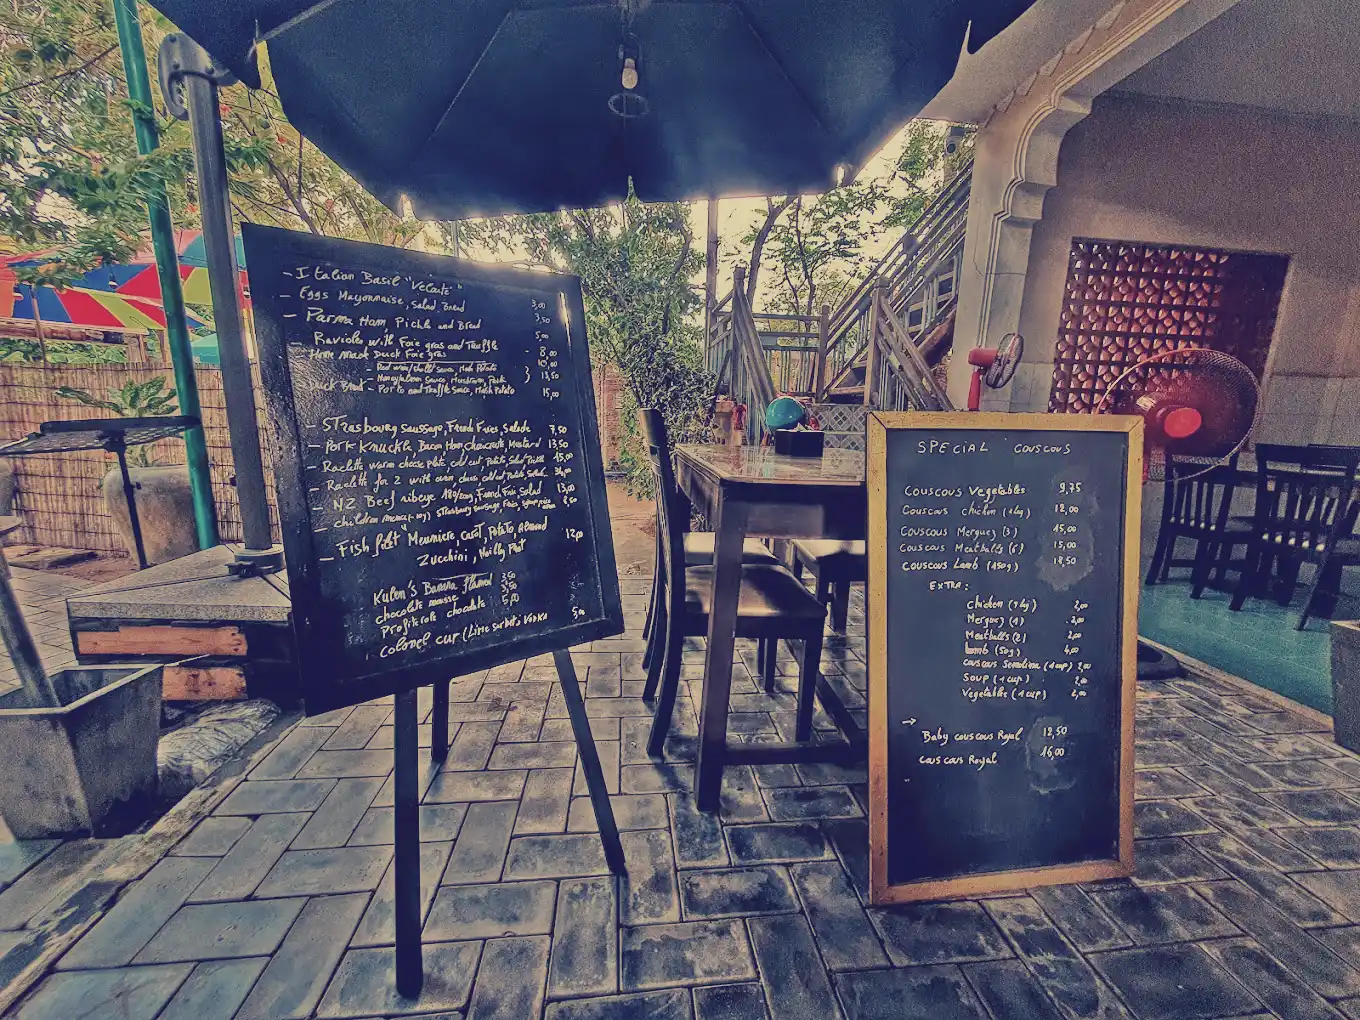 - Italian Basil "Velouté" 3,00
- Eggs Mayonnaise, Salad, Bread 3,50
- Parma Ham, Pickle and Bread 5,00
Raviolis with Foie gras and Truffle - 8,00
Home Made Duck Foie gras 10,00
- Red wine/shallot Sauce, Mash Potato
Duck Breast - Honey/Lemon Sauce, Mushroom, Pesto } 13,50
- Porto and Truffle Sauce, Mash Potato 15,00
- Strasbourg sausage, French Fries, Salade 7,50
- Pork Knuckle, Bacon, Ham, choucroute, Mustard 13,50
Raclette warm cheese plate, cold cut, Potato, Salad, Pickle 15,00
- Raclette for 2 with oven, cheese, cold cut, Potato, Salad
- NZ Beef ribeye 180/200g, French Fries, Salad 13,00
- children menu (-10y) Strasbourg sausage, Fries, 8,50
- Fish filet "Meuniere, carot, Potato, Almond
Zucchini, Noilly Prat 12,00
Kulen's Banana flamed 3,50
chocolate mousse 3,50
Profiterole chocolate 5,00
Colonel cup (Lime sorbet, Vodka 5,00
SPECIAL COUSCOUS
Couscous Vegetables 9,75
Couscous chicken (1 leg) 12,00
Couscous Merguez (3) 15,00
Couscous Meatballs (6) 15,00
Couscous Lamb (150g) 18,50
EXTRA:
Chicken (1 leg) 2,00
Merguez (1) 2,00
Meatballs (2) 2,00
Lamb (50g) 4,00
couscous Semolina (1 cup) 2,00
Soup (1 cup) 2,00
Vegetable (1 cup) 2,00
→ Baby couscous Royal 12,50
Couscous Royal 16,00